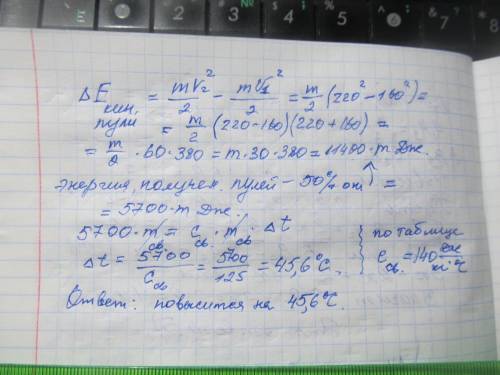 ΔE кин. пули = mV₂²/2 − mV₁²/2 = m/2 (220² − 160²) =
= m/2 (220−160)(220+160) =
= m/2 · 60 · 380 = m·30·380 = 11400·m Дж.
энергия, получен. пулей – 50% от ↑ =
= 5700·m Дж.
5700·m св. = c св. · m св. · Δt
Δt = 5700/c св = 5700/125 = 45,6°C.
по таблице
c св. = 140 Дж/кг·°C
Ответ: повысится на 45,6°C.